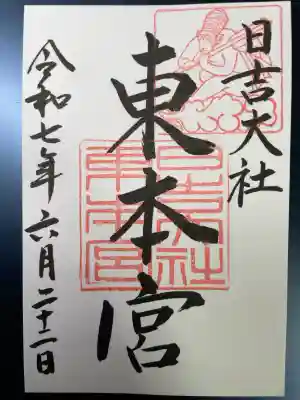 日吉大社
東本宮
日吉大社
東本宮
令和七年六月二十二日